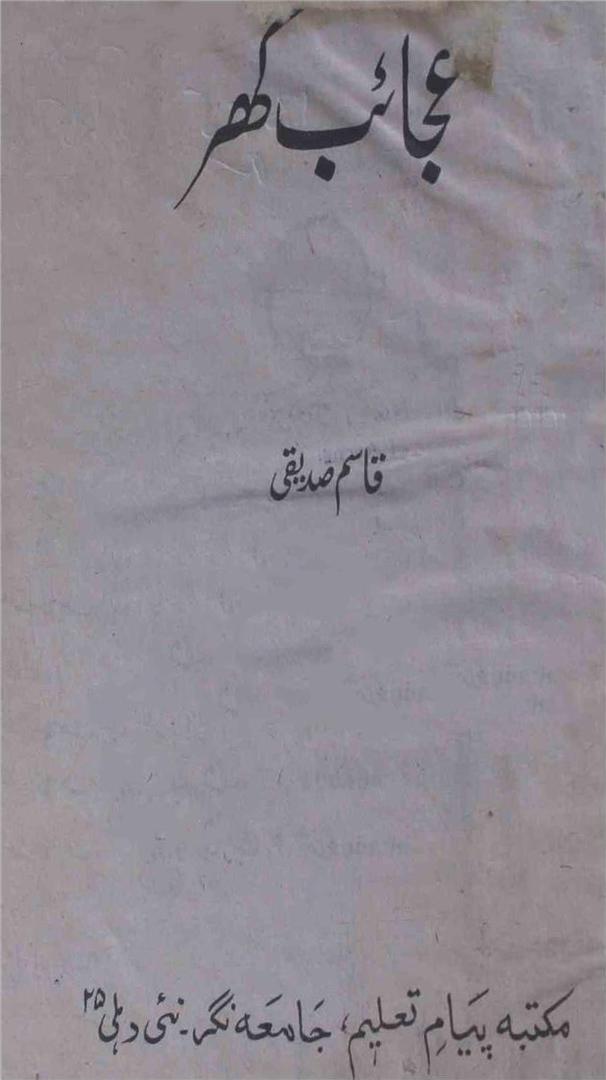 عجائب گھر
قاسم صدیقی
مکتبہ پیامِ تعلیم، جامعہ نگر۔ نئی دہلی ۲۵